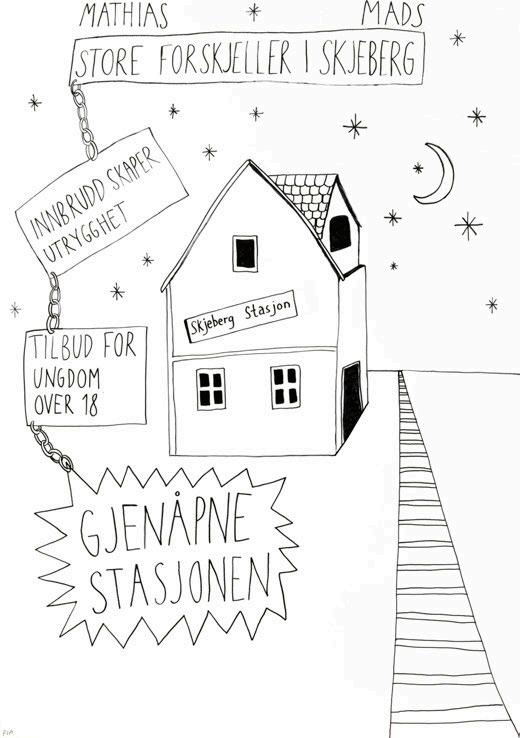 MATHIAS MADS
STORE FORSKJELLER I SKJEBERG
INNBRUDD SKAPER
UTRYGGHET
Skjeberg Stasjon
TILBUD FOR
UNGDOM
OVER 18
GJENÅPNE
STASJONEN